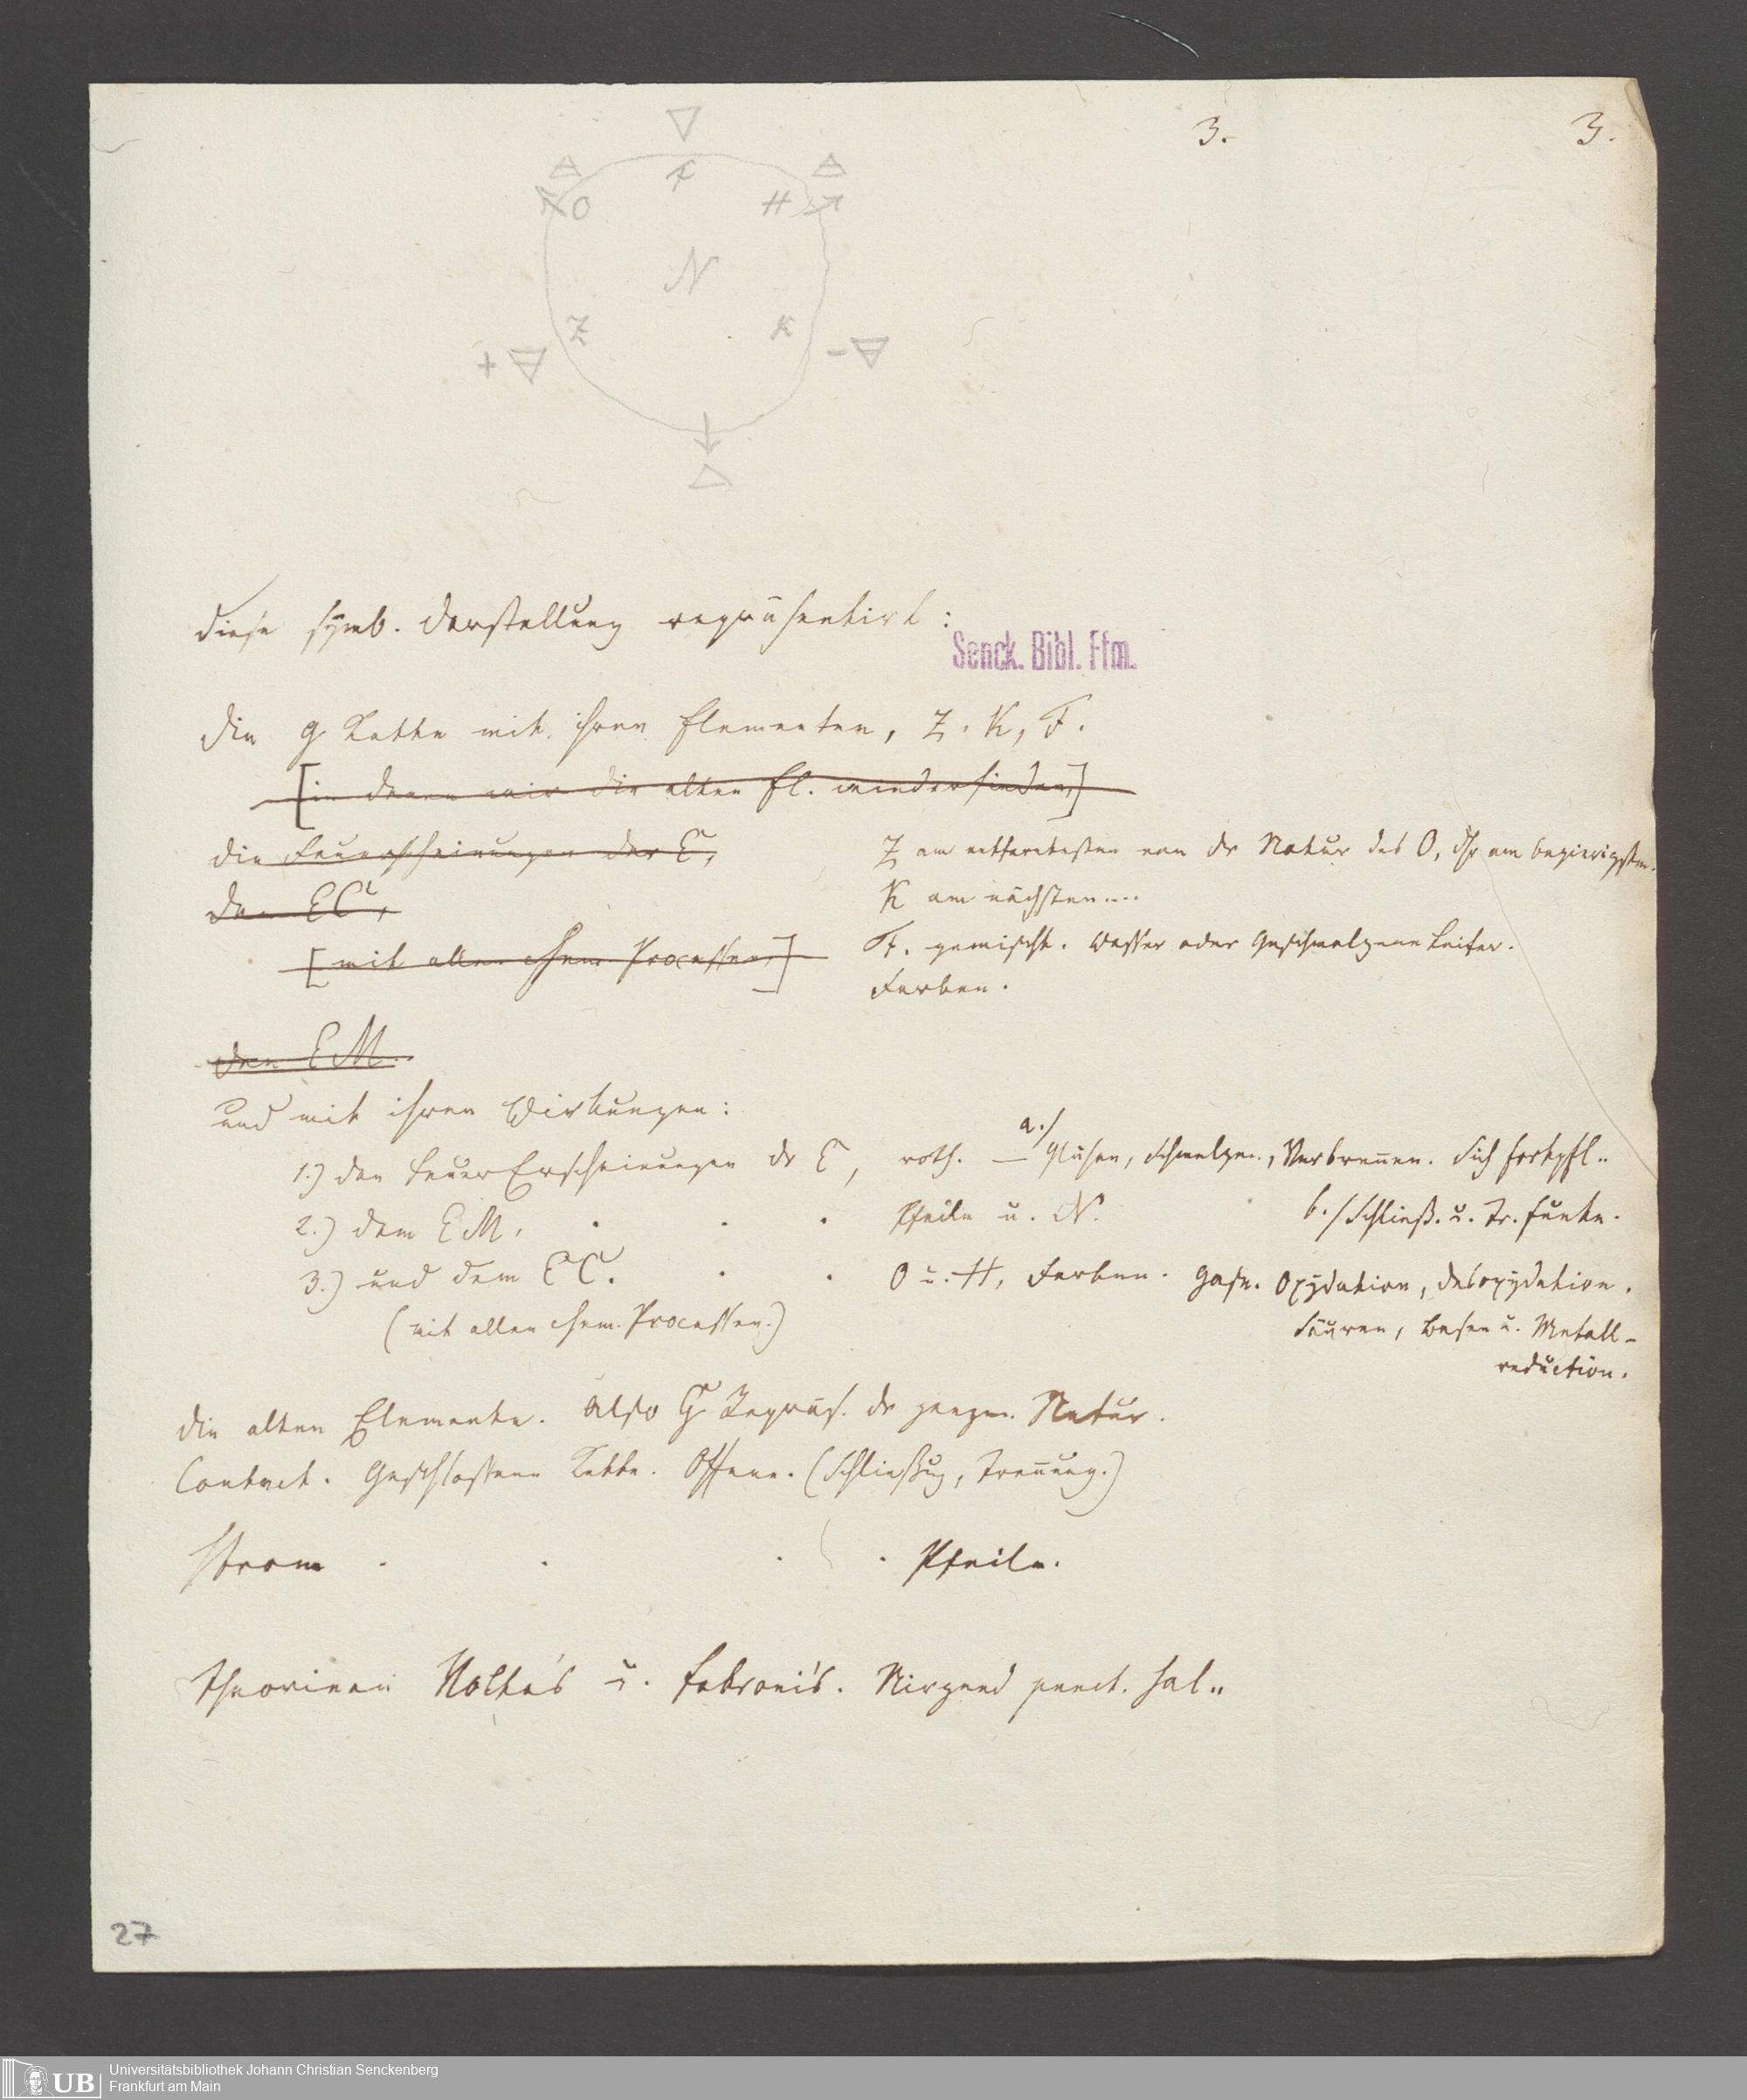 3. 3.
F
O H
N
Z K
+ -
Diese symb. Darstellung repräsentirt:
Senck. Bibl. Ffm.
Die g Kette mit ihren Elementen, Z. K, F.
[in denen wir die alten El. wiederfinden,]
die Feuerscheinungen der E,
Z am entferntesten von dr Natur des O, ihr am begierigsten.
den EC,
K am nächsten....
[mit allen chem Processen,]
F. gemischt. Wasser oder Geschmolzene Leiter.
Farben.
den EM.
und mit ihren Wirkungen:
1.) den FeuerErscheinungen dr E, roth. — a./ Glühen, Schmelzen, Verbrennen. Sich fortpfl..
2.) dem EM, . . . Pfeile u. N. b./ Schließ. u. Tr. Funke.
3.) und dem EC. . . O u. H, Farben. Gase. Oxÿdation, Desoxÿdation.
(mit allen chem. Processen.)
Säuren, Basen u. Metall-
reduction.
die alten Elemente. Also G Repräs. dr ganzen Natur.
Contact. Geschlossene Kette. Offene. (Schließug, Trennung.)
Strom . . . . Pfeile.
Theorieen Volta's u. Fabroni's. Nirgend punct. sal..
27
UB Universitätsbibliothek Johann Christian Senckenberg
Frankfurt am Main